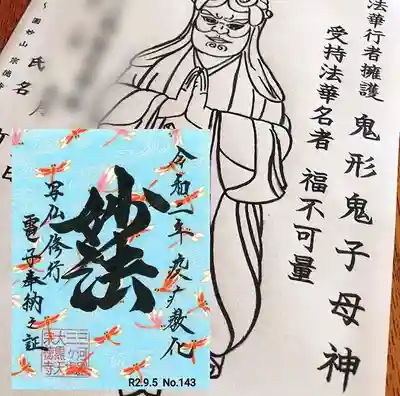 法華行者擁護 鬼形鬼子母神
受持法華名者 福不可量
圓妙山 宗徳寺
氏名
令和二年
妙法
写仏修行
電子奉納之証
大黒天
宗徳寺
R2.9.5 No.143